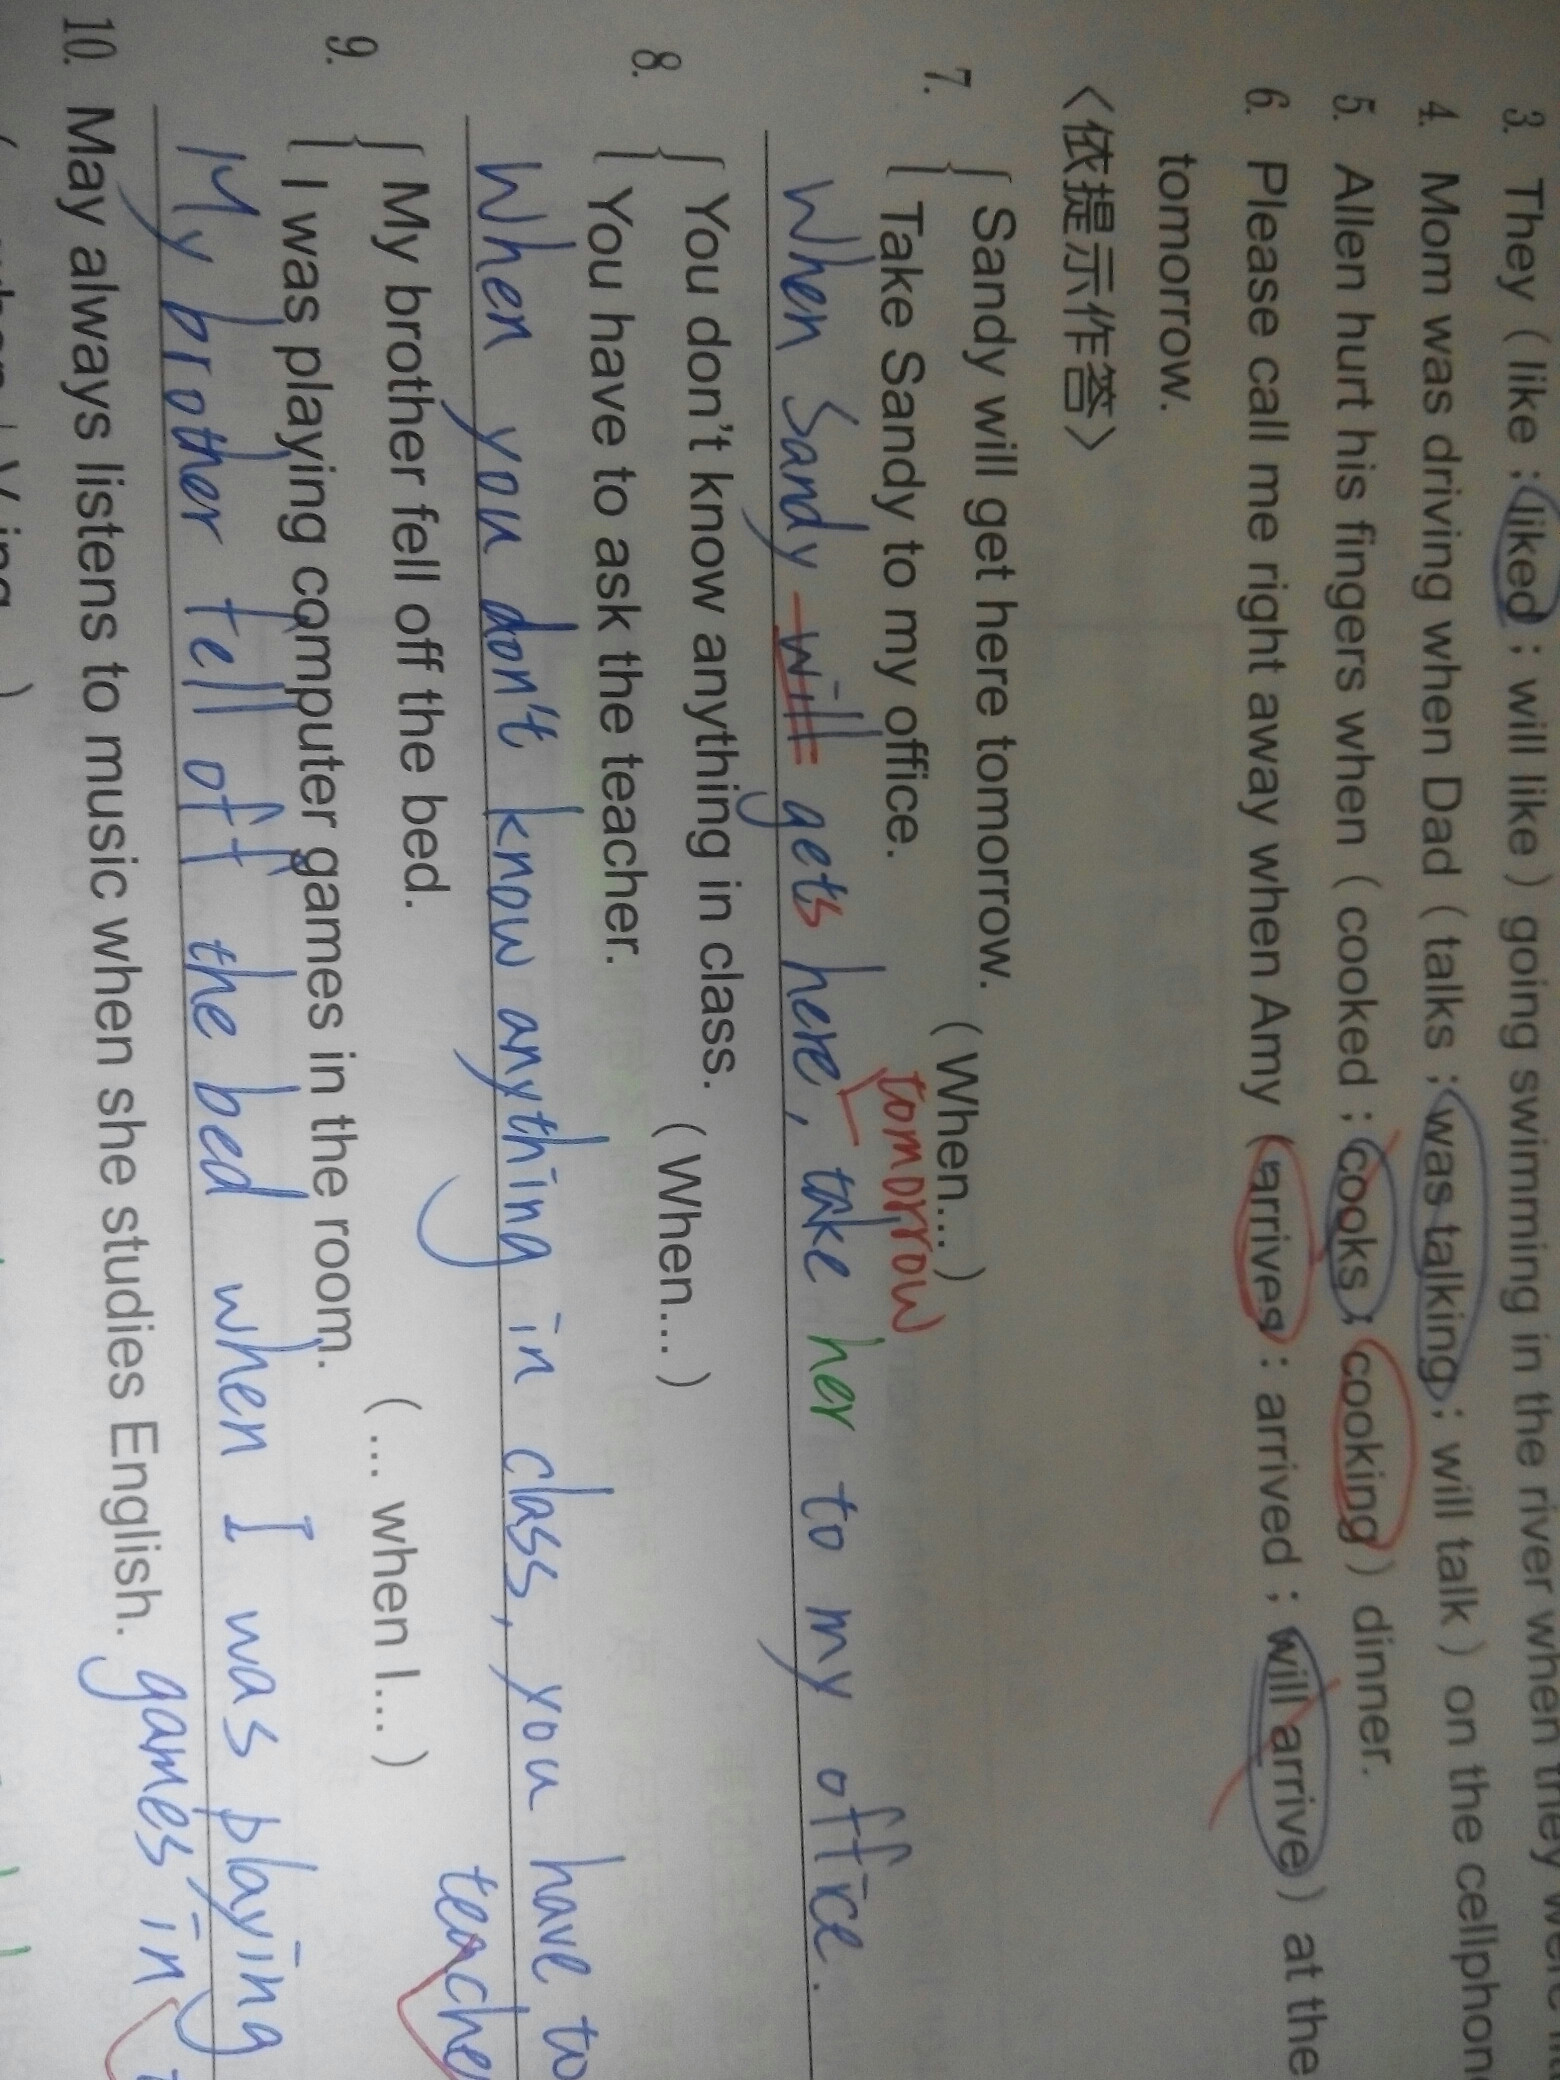 3. They ( like ; liked ; will like ) going swimming in the river when they
4. Mom was driving when Dad ( talks ; was talking ; will talk ) on the
5. Allen hurt his fingers when ( cooked ; cooks ; cooking ) dinner.
6. Please call me right away when Amy ( arrives ; arrived ; will arrive ) at the
tomorrow.
〈依提示作答〉
7. Sandy will get here tomorrow. ( When... )
Take Sandy to my office.
tomorrow
When Sandy will gets here, take her to my office.
8. You don't know anything in class. ( When... )
You have to ask the teacher.
When you don't know anything in class, you have to
9. My brother fell off the bed. ( ... when I... )
I was playing computer games in the room.
My brother fell off the bed when I was playing
games in
10. May always listens to music when she studies English.